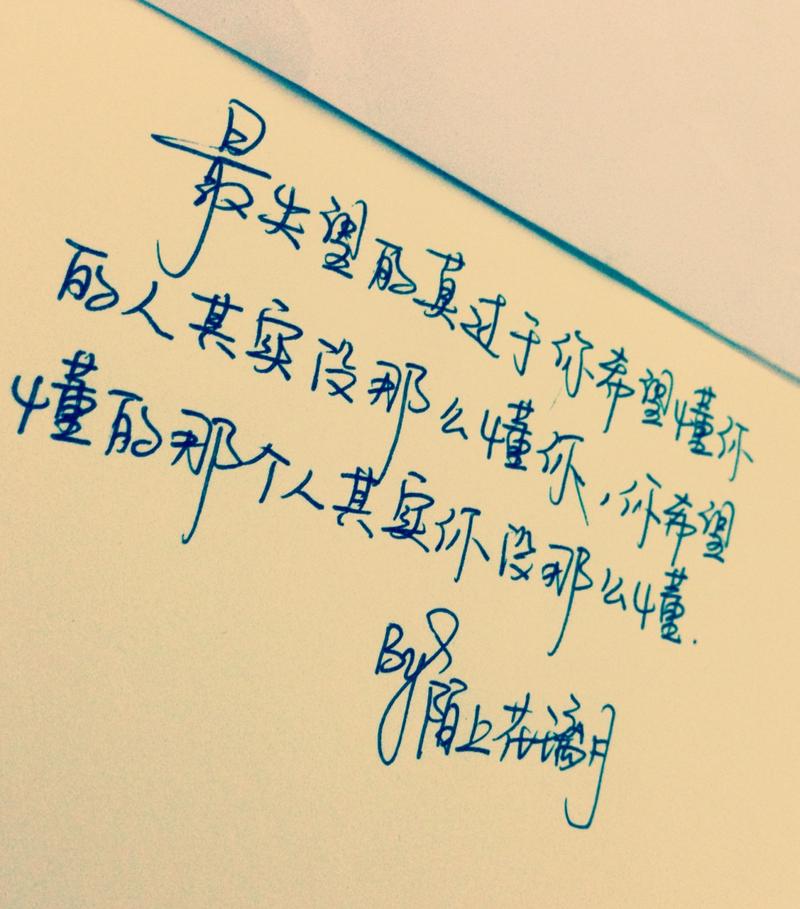 最失望的莫过于你希望懂你
的人其实没那么懂你，你希望
懂的那个人其实你没那么懂.
By陌上花满月